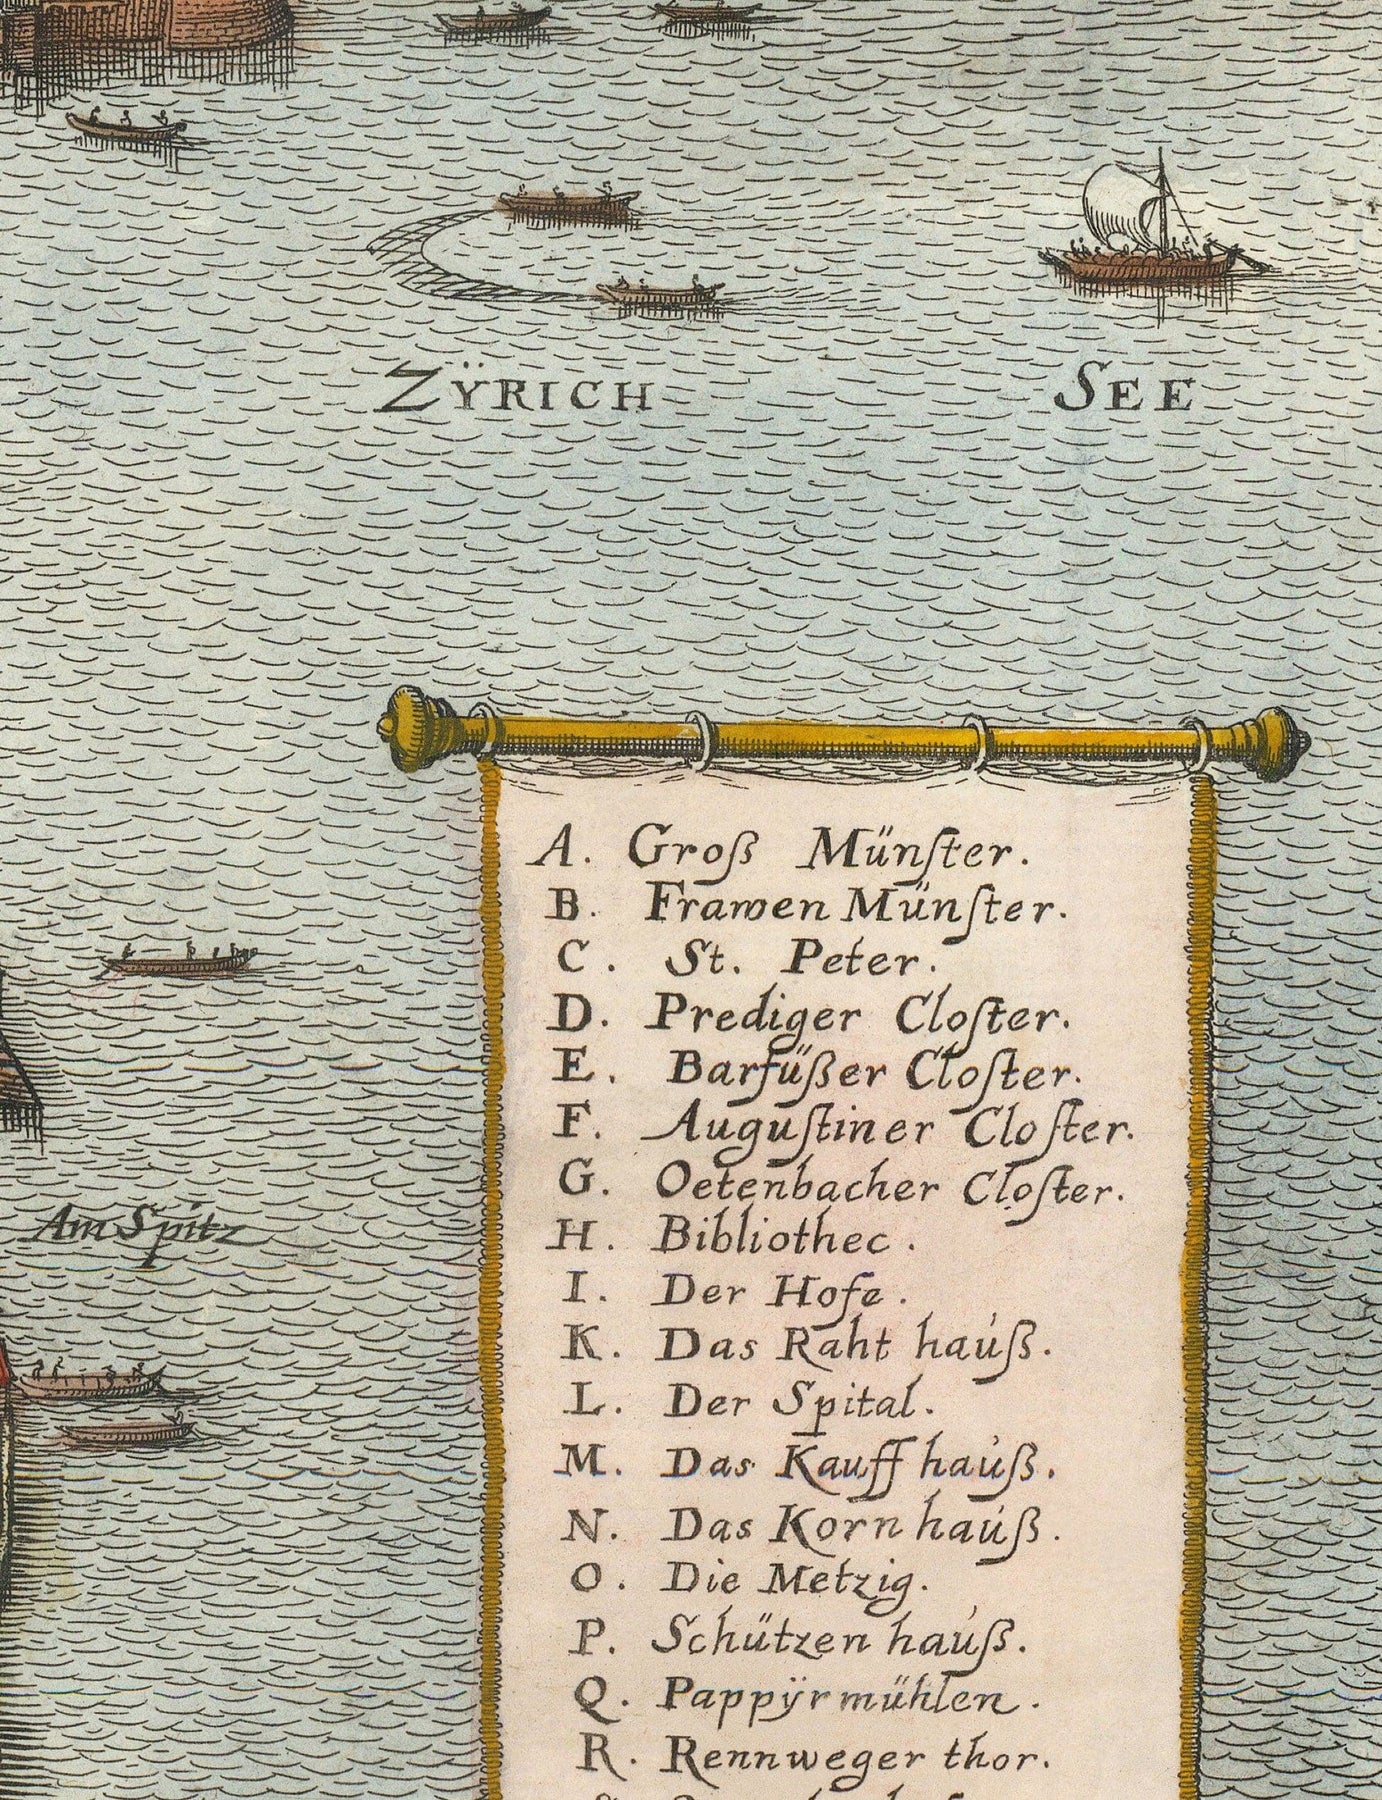 ZŸRICH SEE
A. Groß Münſter.
B. Frawen Münſter.
C. St. Peter.
D. Prediger Cloſter.
E. Barfüßer Cloſter.
F. Auguſtiner Cloſter.
G. Oetenbacher Cloſter.
Am Spitz
H. Bibliothec.
I. Der Hofe.
K. Das Raht hauß.
L. Der Spital.
M. Das Kauff hauß.
N. Das Korn hauß.
O. Die Metzig.
P. Schützen hauß.
Q. Pappÿr mühlen.
R. Rennweger thor.